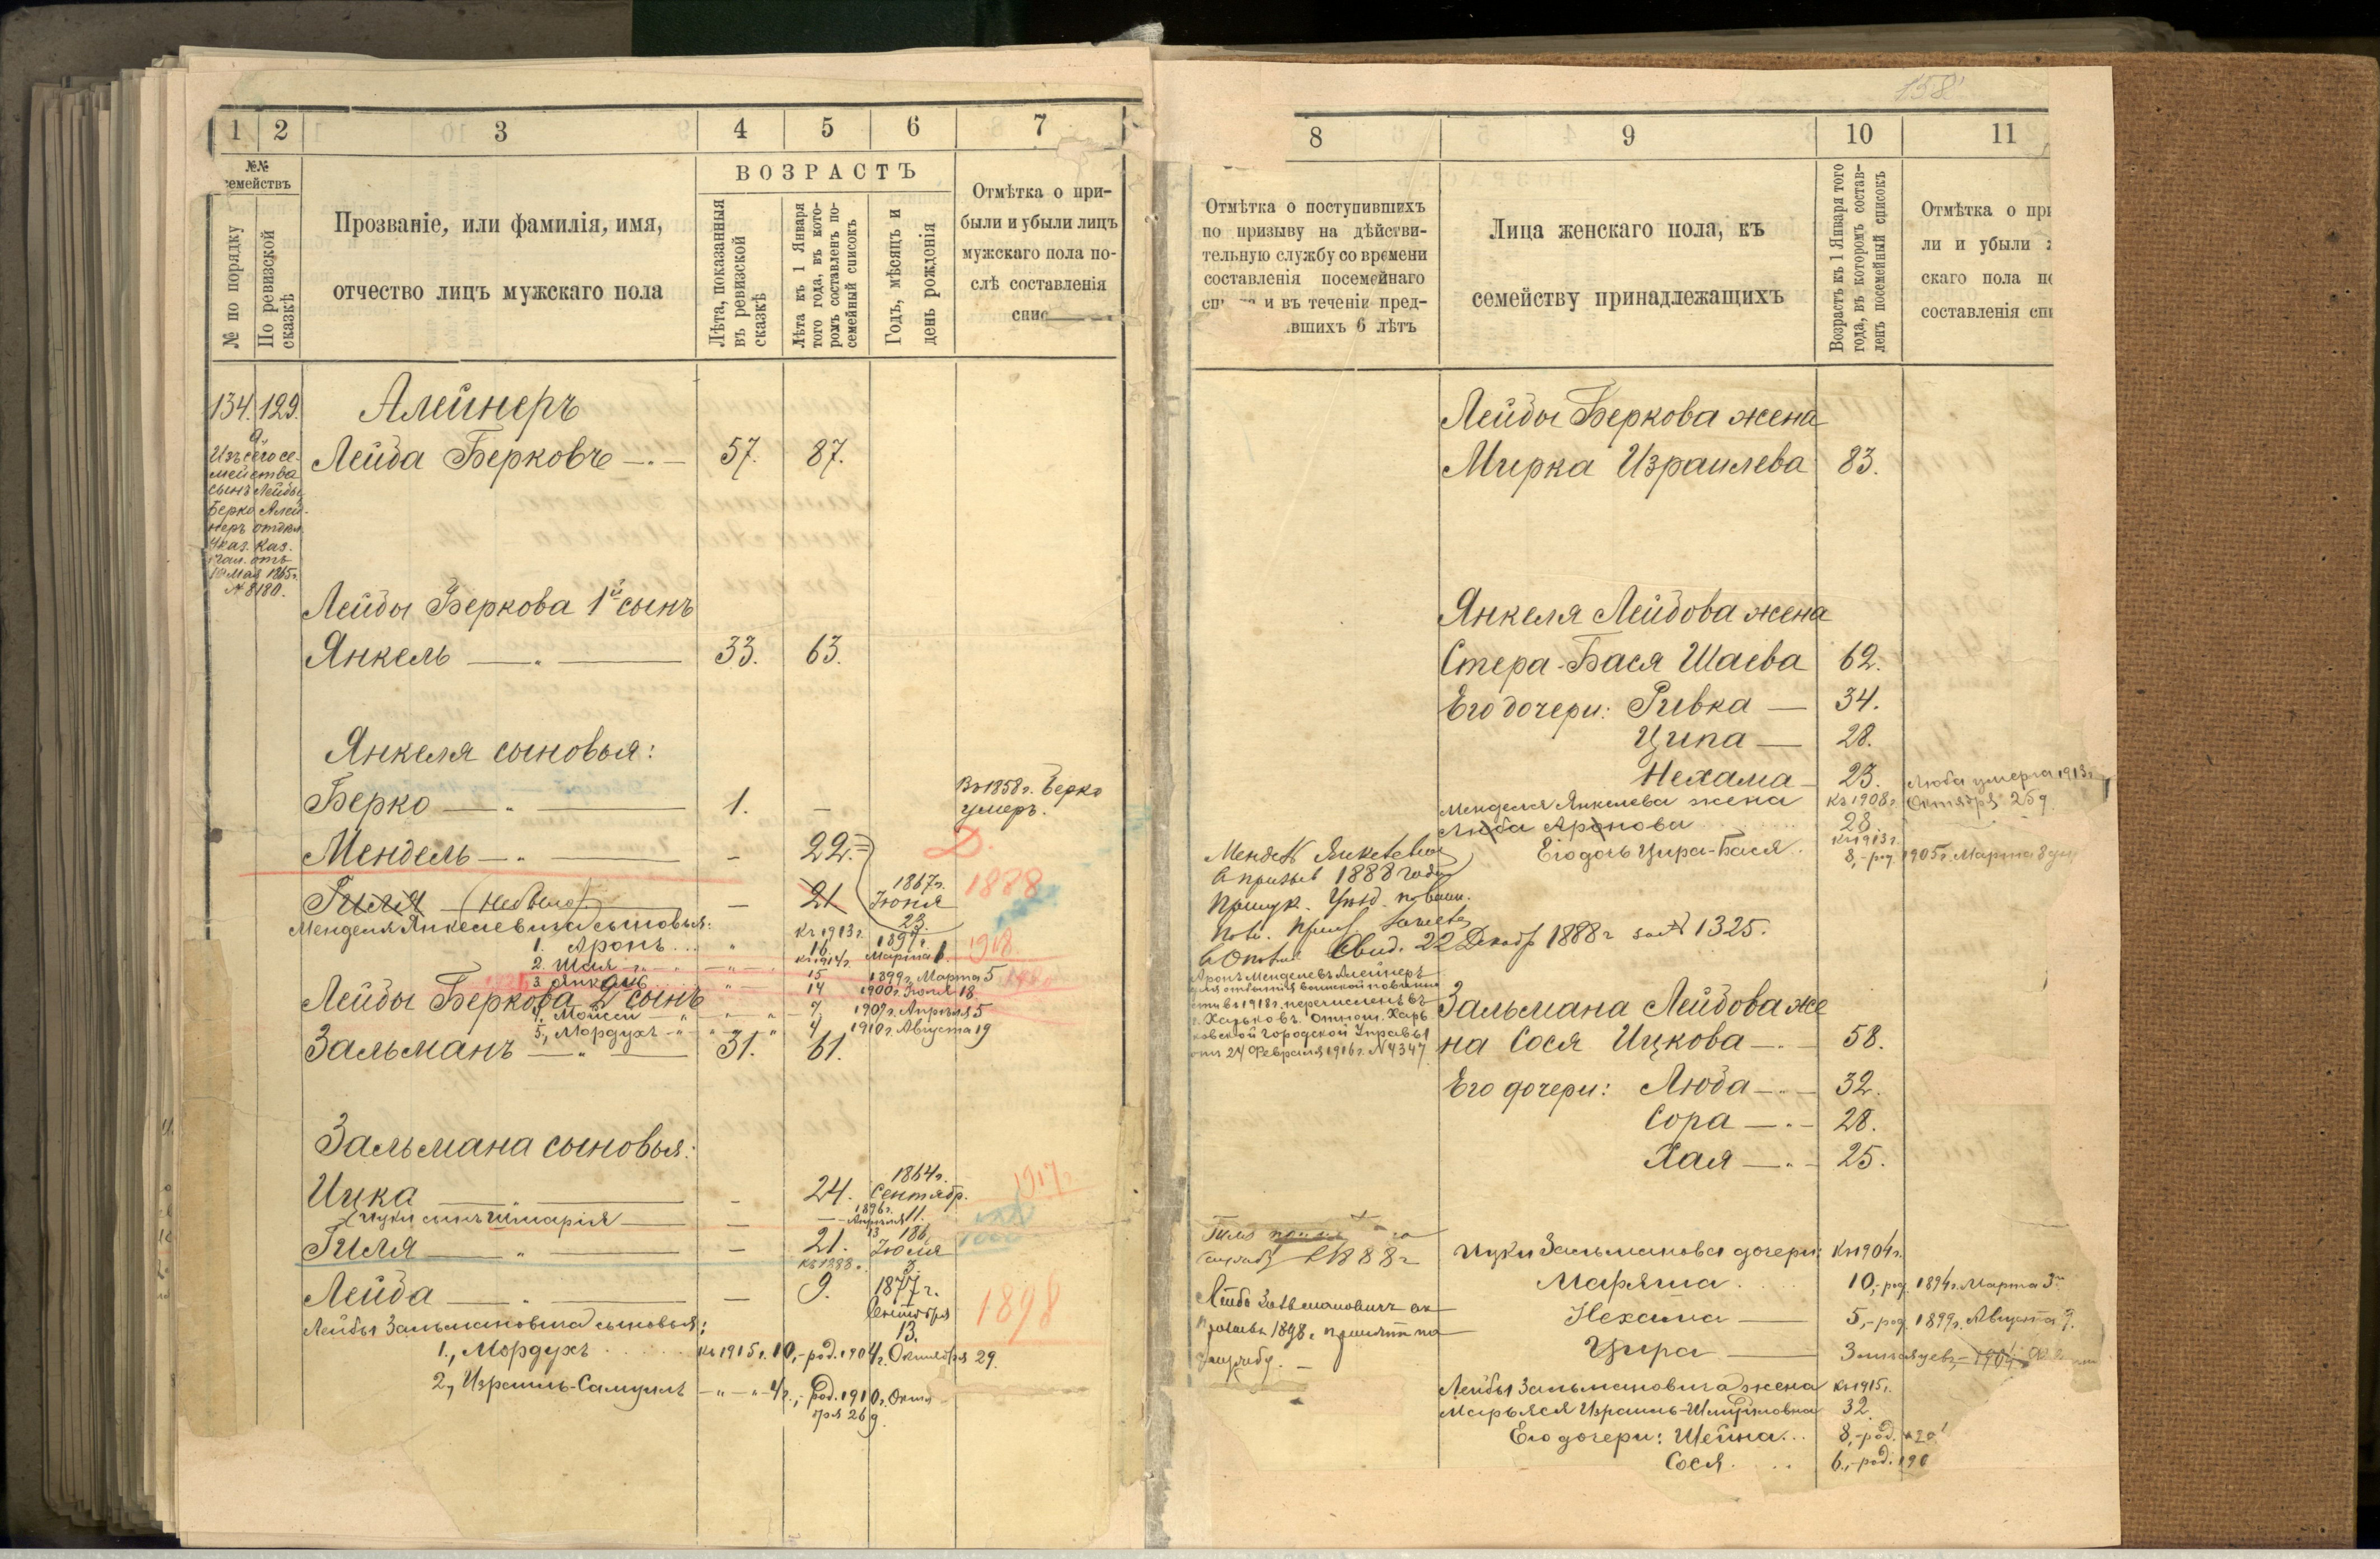 1 2 3 4 5 6 7
№№
семействъ
№ по порядку
По ревизской
сказкѣ
Прозваніе, или фамилія, имя,
отчество лицъ мужскаго пола
ВОЗРАСТЪ
Лѣта, показанныя
въ ревизской
сказкѣ
Лѣта къ 1 Января
того года, въ кото-
ромъ составленъ по-
семейный списокъ
Годъ, мѣсяцъ и
день рожденія
Отмѣтка о при-
были и убыли лицъ
мужскаго пола по-
слѣ составленія
спис
134. 129. Алейнеръ
Лейба Берковъ 57. 87.
Изъ сего се-
мейства
сынъ Лейбы
Берко Алей-
неръ отдѣл.
Указ. Каз.
Пал. отъ
Мая 1865 г.
№ 8180.
Лейбы Беркова 1й сынъ
Янкель 33. 63.
Янкеля сыновья:
Берко 1. — Въ 1858 г. Берко
умеръ.
Мендель - 22.
Гиля 21 1867 г. 1888
Июня
23.
Менделя Янкелевича сыновья:
1. Аронъ къ 1913 г. 16. 1897 г. Марта 1. 1918
2. Шая къ 1914 г. 15 1899 г. Марта 5
3. Янкель 14 1900 г. Июля 18.
Лейбы Беркова 2й сынъ
4. Мойсей 7, 1907 г. Апрѣля 5
5, Мордухъ 4 1910 г. Августа 19
Зальманъ 31. 61.
Зальмана сыновья:
Ицка - 24. 1864 г.
Сентябр. 1917
11.
Ицки сынъ Шмарія 1896 г.
Апрѣля 13
Гиля - 21. 186
Июля
8.
Лейба — 9. 1877 г.
Сентября
13. 1898
Лейбы Зальмановича сыновья:
1, Мордухъ къ 1915 г. 10, - род. 1904 г. Октября 29.
2, Израиль-Самуилъ 4 г., - род. 1910 г. Октя
бря 26 д.
158
8 9 10 11
Отмѣтка о поступившихъ
по призыву на дѣйстви-
тельную службу со времени
составленія посемейнаго
и въ теченіи пред-
вшихъ 6 лѣтъ
Лица женскаго пола, къ
семейству принадлежащихъ
Возрастъ къ 1 Января того
года, въ которомъ состав-
ленъ посемейный списокъ
Отмѣтка о при
ли и убыли
скаго пола по
составленія спи
Лейбы Беркова жена
Мирка Израилева 83.
Янкеля Лейбова жена
Стера-Бася Шаева 62.
Его дочери: Ривка 34.
Ципа 28.
Нехама 23.
Менделя Янкелева жена къ 1908 г.
Люба Аронова 28
Люба умерла 1913 г.
Октября 25 д.
Его дочь Цира-Бася къ 1913 г. 8, - род. 1905 г. Марта 8 дня
Мендель Янкелевич
въ призыв 1888 года
22 Декабр 1888 г за № 1325.
Аронъ Менделевъ Алейнеръ
для отбытія воинской повинно
сти въ 1918 г. перечисленъ въ
г. Харьковъ. Отнош. Харь
ковской Городской Управы
отъ 24 Февраля 1916 г. № 4347
Зальмана Лейбова же
на Сося Ицкова 58.
Его дочери: Люба 32.
Сора 28.
Хая 25.
службу 1888 г
Лейба Зальмановичъ въ
призывъ 1898 г. принятъ на
службу.
Ицки Зальмановы дочери: къ 1904 г.
Маряша 10, - род. 1894 г. Марта 3
Нехама 5, - род. 1899 г. Августа 9.
Цира 3 мѣсяцевъ,
Лейбы Зальмановича жена къ 1915 г.
Марьяся Израиль-Шмуйловна 32.
Его дочери: Шейна 8, - род.
Сося 6, - род. 190